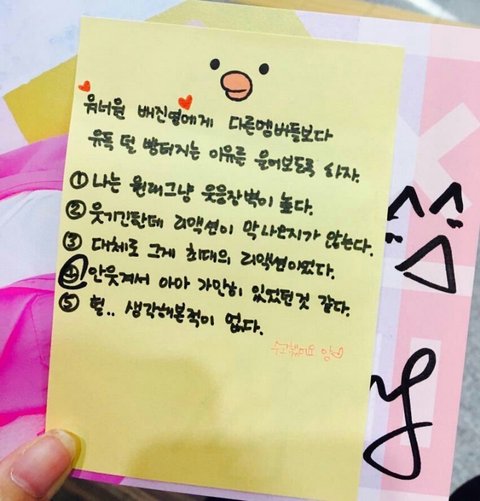 워너원 배진영에게 다른멤버들보다
유독 덜 빵터지는 이유를 물어보도록 하자.
① 나는 원래그냥 웃음장벽이 높다.
② 웃기긴한데 리액션이 막 나오지가 않는다.
③ 대체로 그게 최대의 리액션이었다.
④ 안웃겨서 아마 가만히 있었던것 같다.
⑤ 헐.. 생각해본적이 없다.